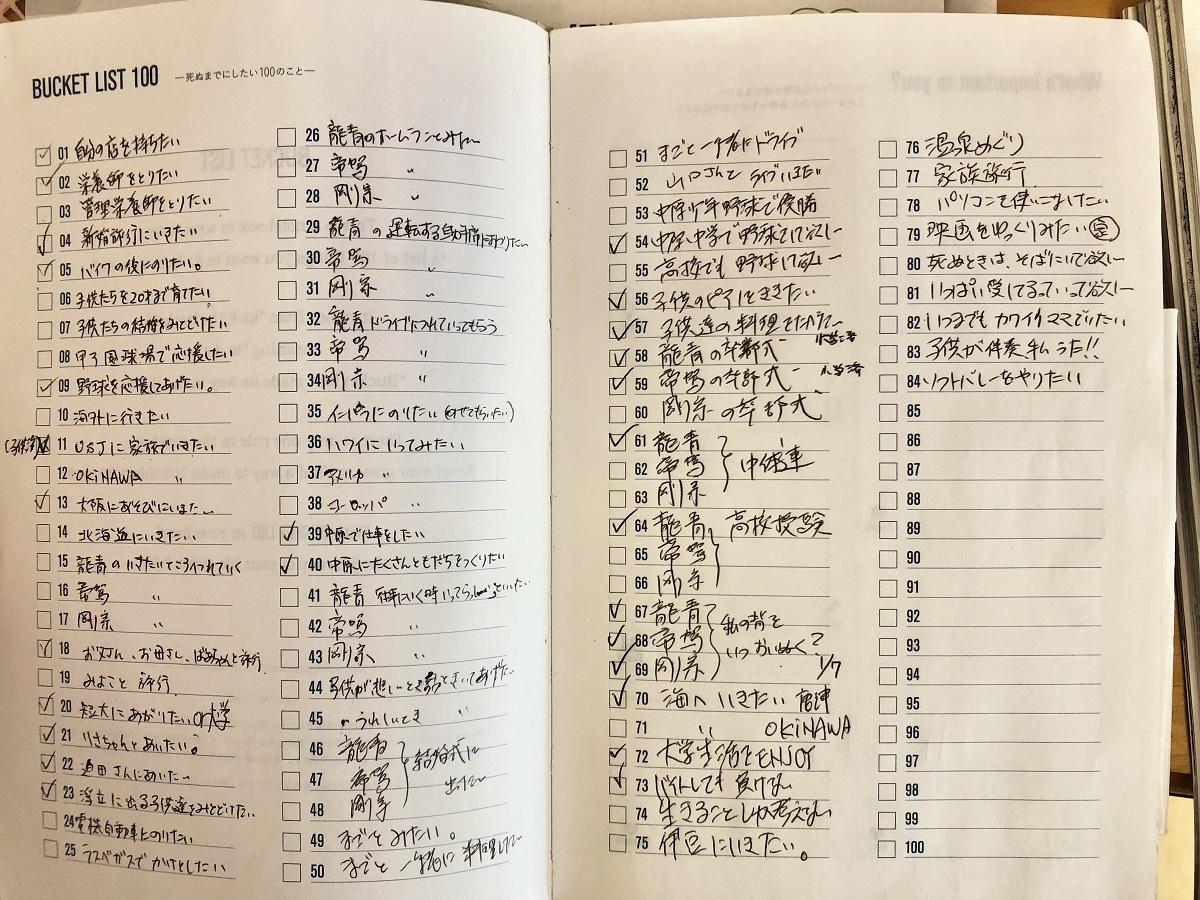 BUCKET LIST 100 ―死ぬまでにしたい100のこと―
01 自分の店を持ちたい
02 栄養師をとりたい
03 管理栄養師をとりたい
04 新婚旅行にいきたい
05 バイクの後にのりたい。
06 子供たちを20才まで育てたい
07 子供たちの結婚をみとどけたい
08 甲子園球場で応援したい
09 野球を応援してあげたい。
10 海外に行きたい
11 USJに家族でいきたい
12 OKINAWA 〃
13 大阪にあそびにいきたい
14 北海道にいきたい
15 龍青のいきたいところへつれていく
16 〃
17 剛宗 〃
18 お父さん、お母さん、ばあちゃんと旅行
19 みよこと旅行
20 短大にあがりたいor大学
21 りさちゃんとあいたい。
22 迫田さんにあいたい
23 浮立に出る子供達をみとどけたい
24 電機自動車にのりたい
25 ラスベガスでかけをしたい
26 龍青のホームランをみたい
27 〃
28 剛宗 〃
29 龍青の運転する自動車にのりたい
30 〃
31 剛宗 〃
32 龍青ドライブにつれていってもらう
33 〃
34 剛宗 〃
35 にのりたい(のせてもらいたい)
36 ハワイにいってみたい
37 アメリカ 〃
38 ヨーロッパ 〃
39 中原で仕事をしたい
40 中原にたくさんともだちをつくりたい
41 龍青 仕事にいく時いってらっしゃいといいたい
42 〃
43 剛宗 〃
44 子供が悲しいとき話をきいてあげたい
45 〃うれしいとき 〃
46 龍青
47 結婚式に出たい
48 剛宗
49 まごをみたい。
50 まごと一緒に料理したい
51 まごと一緒にドライブ
52 山口さんとライブいきたい
53 中原少年野球で優勝
54 中原中学で野球をして欲しい
55 高校でも野球して欲しい
56 子供のピアノをききたい
57 子供達の料理をたべたい
58 龍青の卒業式
59 の卒業式
60 剛宗の卒業式
61 龍青
62
63 剛宗
64 龍青 高校受験
65
66 剛宗
67 龍青
68 私の背をいつおいぬく?
69 剛宗 1/7
70 海へいきたい 唐津
71 〃 OKINAWA
72 大学生活をENJOY
73 バイトしても負けない
74 生きることしか考えない
75 伊豆にいきたい。
76 温泉めぐり
77 家族旅行
78 パソコンを使いこなしたい
79 映画をゆっくりみたい
80 死ぬときは、そばにいて欲しい
81 いっぱい愛してるっていって欲しい
82 いつまでもカワイイママでいたい
83 子供が伴奏 私うた!!
84 ソフトバレーをやりたい
85
86
87
88
89
90
91
92
93
94
95
96
97
98
99
100